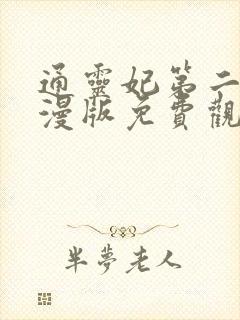 通靈妃第二
漫版免費觀
半夢老人